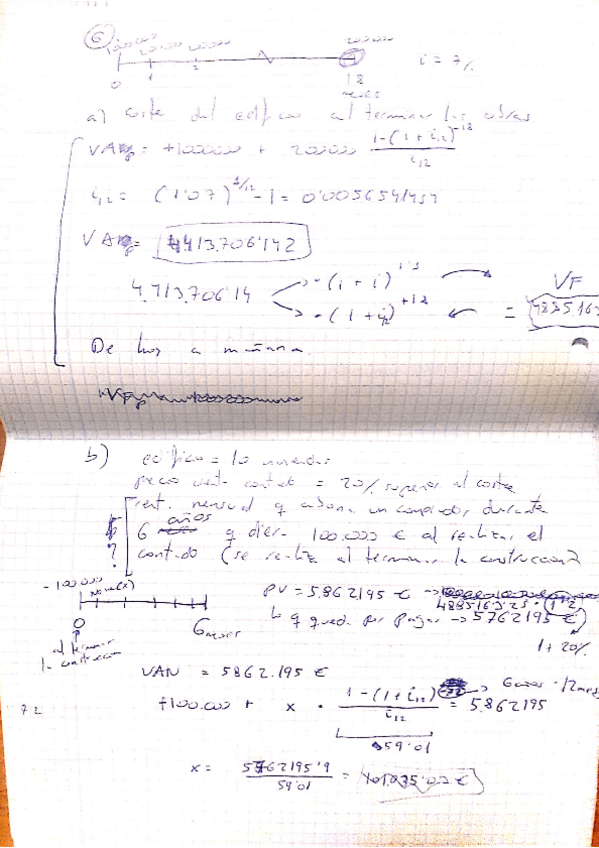 6
0 1 2 18
meses
i = 7%
a) coste del edificio al terminar las obras
VA = +1000000 + 200000 1-(1+i12)^-18 / i12
i12 = (1'07)^1/12 - 1 = 0'005654145
VA = 4.413.706'142
4.413.706'14 · (1+i)^1'5 VF
· (1+i12)^+18 = 4885163
De hoy a mañana
b) edificio = 10 viviendas
precio venta contado = 20% superior al coste
rent. mensual q abona un comprador durante
6 años q dier. 100.000 € al realizar el
? contado (se realiza al terminar la construcción)
-100.000
0 6 meses
al terminar
la construcción
PV = 5.862195 € → 4885163'25 · (1'2)
Lo q queda por pagar → 5762195 €
1 + 20%
VAN = 5862.195 €
72 +100.000 + x · 1-(1+i12) / i12 = 5.862195
6 años · 12 meses
59'01
x = 5762195'9 / 59'01 =